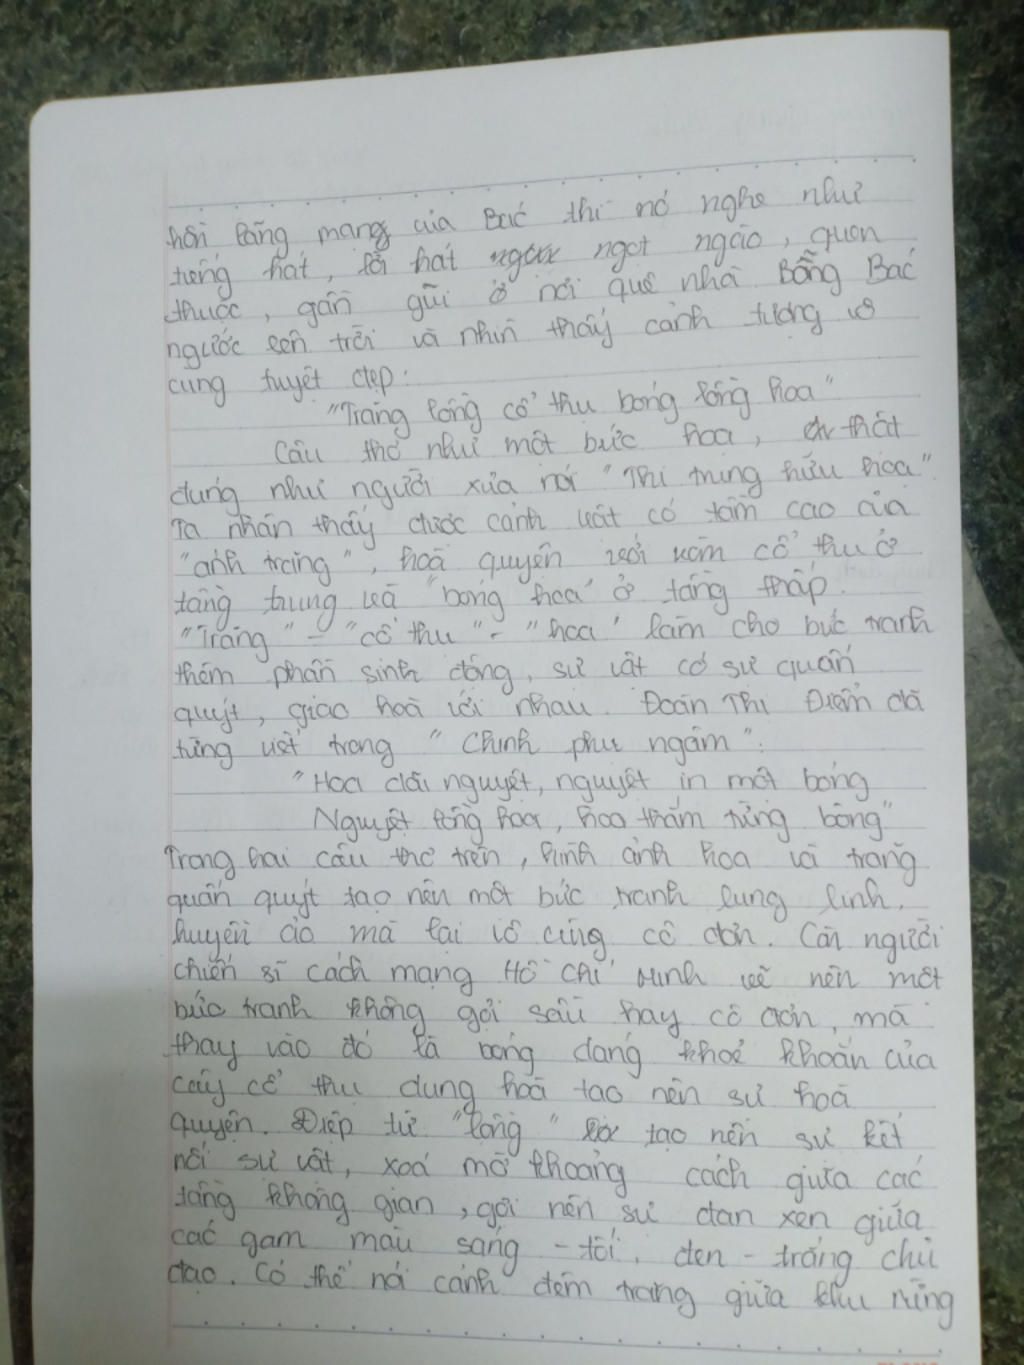 hồn lãng mạng của Bác thì nó nghe như
tiếng hát, lời hát ngọt ngào, quen
thuộc, gần gũi ở nơi quê nhà. Bỗng Bác
ngước lên trời và nhìn thấy cảnh tượng vô
cùng tuyệt đẹp:
"Trăng lồng cổ thụ bóng lồng hoa"
Câu thơ như một bức hoạ, thật
đúng như người xưa nói "Thi trung hữu hoạ"
Ta nhận thấy được cảnh vật có tầm cao của
"ánh trăng", hoà quyện với vòm cổ thụ ở
tầng trung và "bóng hoa" ở tầng thấp.
"Trăng" - "cổ thụ" - "hoa" làm cho bức tranh
thêm phần sinh động, sự vật có sự quấn
quýt, giao hoà với nhau. Đoàn Thị Điểm đã
từng viết trong "Chinh phụ ngâm":
"Hoa dãi nguyệt, nguyệt in một bóng
Nguyệt lồng hoa, hoa thắm từng bông"
Trong hai câu thơ trên, hình ảnh hoa và trăng
quấn quýt tạo nên một bức tranh lung linh,
huyền ảo mà lại vô cùng cô đơn. Còn người
chiến sĩ cách mạng Hồ Chí Minh vẽ nên một
bức tranh không gợi sầu hay cô đơn, mà
thay vào đó là bóng dáng khoẻ khoắn của
cây cổ thụ dung hoà tạo nên sự hoà
quyện. Điệp từ "lồng" tạo nên sự kết
nối sự vật, xoá mờ khoảng cách giữa các
tầng không gian, gợi nên sự đan xen giữa
các gam màu sáng - tối, đen - trắng chủ
đạo. Có thể nói cảnh đêm trăng giữa khu rừng